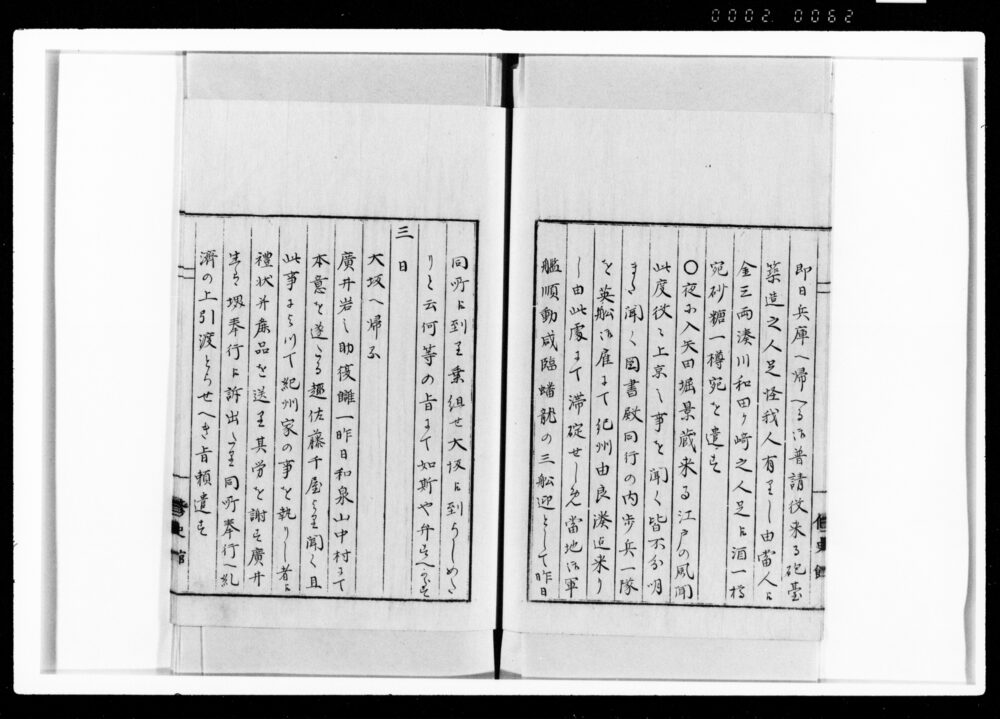 0002 0062
即日兵庫へ帰へる沍普請役来る砲臺
築造之人足怪我人有ましし由當人ゟ
金三両湊川和田ヶ﨑之人足ゟ酒一樽
宛砂糖一樽宛を遣す
〇夜に入矢田堀景蔵来る江戸の風聞
此度役々上京し事を聞く皆不分明
また聞く図書殿同行の内歩兵一隊
を英船沍雇にて紀州由良湊迠来り
し由此處にて滞碇せしむ當地沍軍
艦順動咸臨蟠龍の三船迎として昨日
同所に到り乗組せ大坂に到らしめた
りと云何等の旨にて如斯や弁すへからす
三日
大坂へ帰る
廣井岩之助復讎一昨日和泉山中村にて
本意を遂くる趣佐藤千屋より聞く且
此事によりて紀州家の事を執りし者に
禮状并麁品を送り其労を謝す廣井
生は堺奉行に訴出たり同所奉行一札
済の上引渡とらせへき旨頼遣す